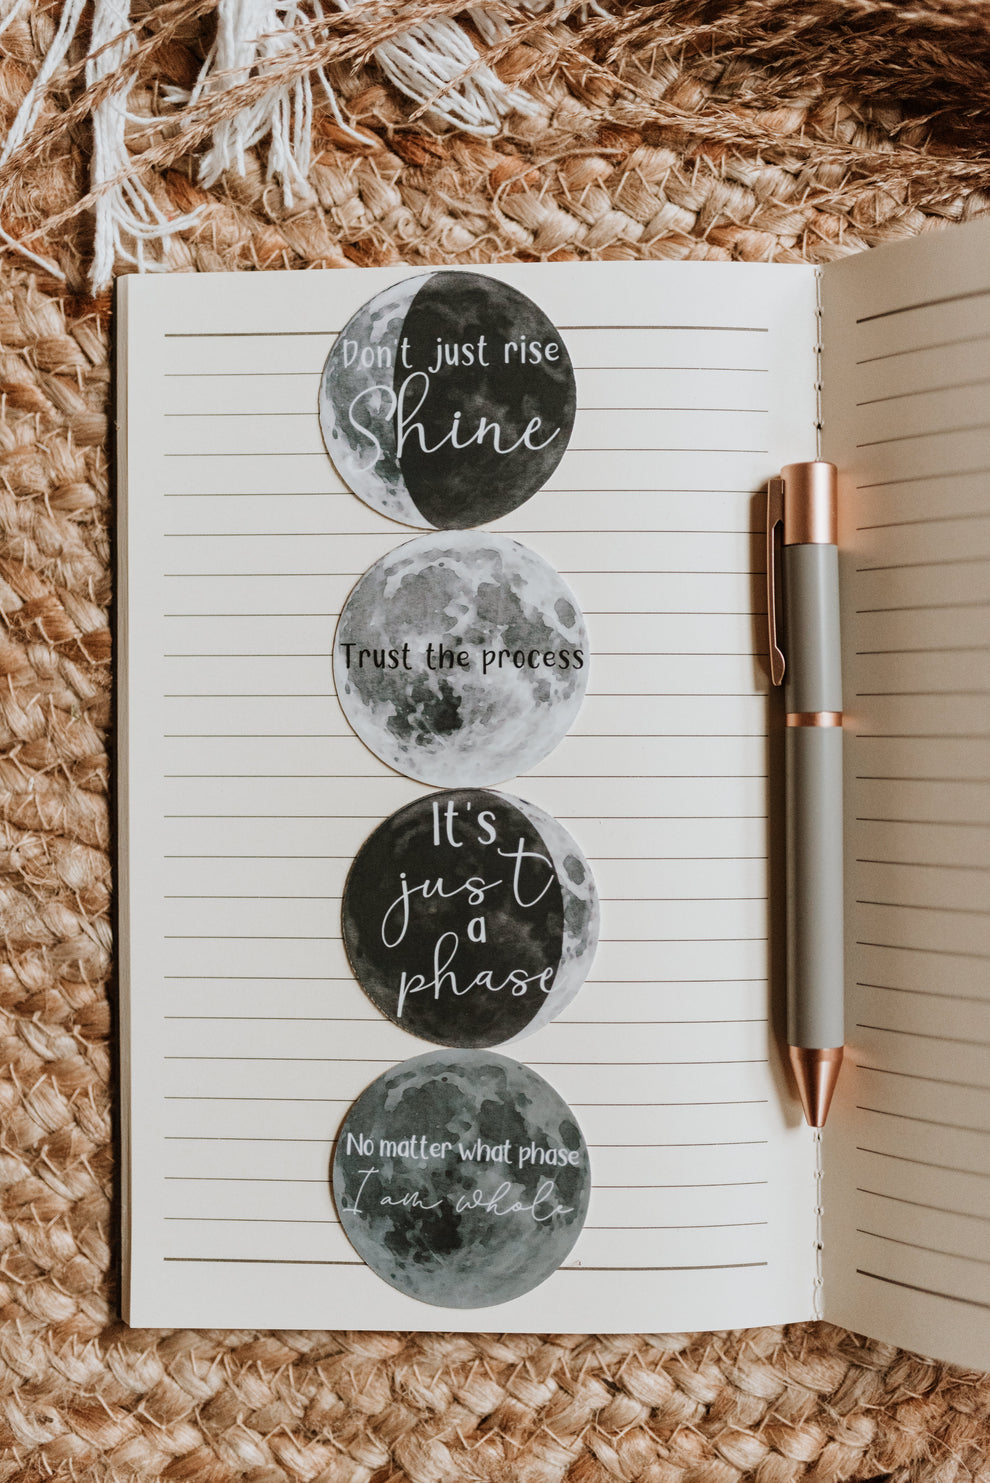 Don't just rise
Shine
Trust the process
It's
just
a
phase
No matter what phase
I am whole